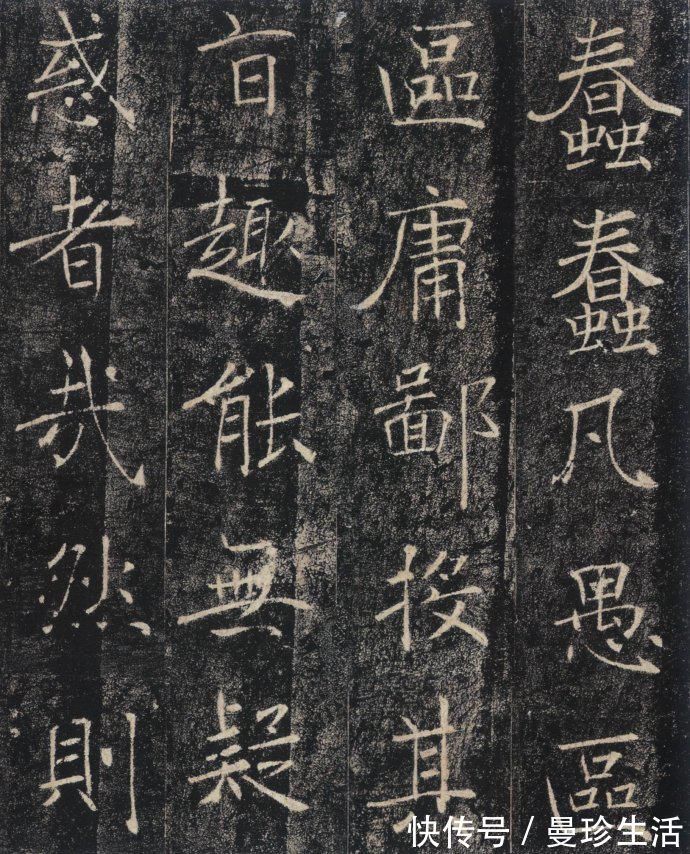 蠢蠢凡愚區
區庸鄙投其
旨趣能無疑
惑者哉然則
快传号 / 曼珍生活